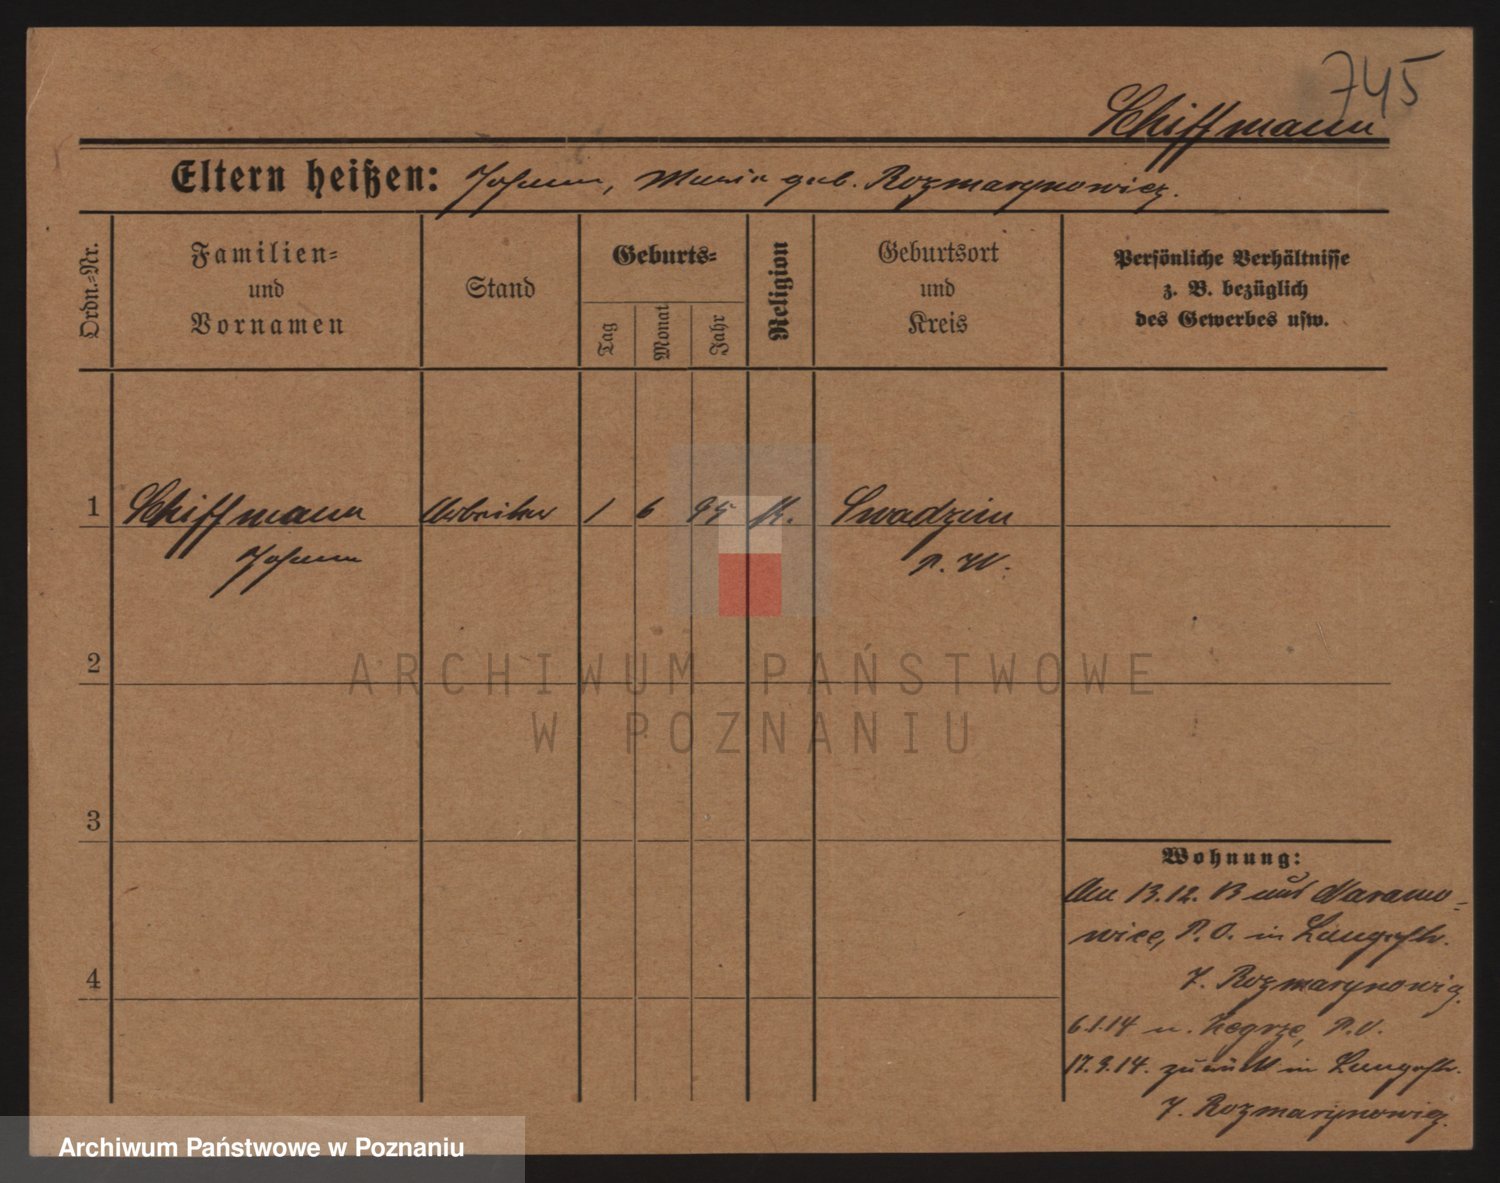 745
Schiffmann
Eltern heißen: Johann, Maria geb. Rozmarynowicz.
Ordn.-Nr.
Familien- und Vornamen
Stand
Geburts-
Tag
Monat
Jahr
Religion
Geburtsort und Kreis
Persönliche Verhältnisse
z. B. bezüglich
des Gewerbes usw.
1 Schiffmann Arbeiter 1 6 95 K. Swadzim
Johann P. W.
2
ARCHIWUM PAŃSTWOWE
W POZNANIU
3
Wohnung:
Am 13.12.13 aus Naramo-
wice, P.O. in Langestr.
7. Rozmarynowicz.
4
6.1.14 n. Zegrze, P.O.
17.3.14. zurück in Langestr.
7. Rozmarynowicz.
Archiwum Państwowe w Poznaniu